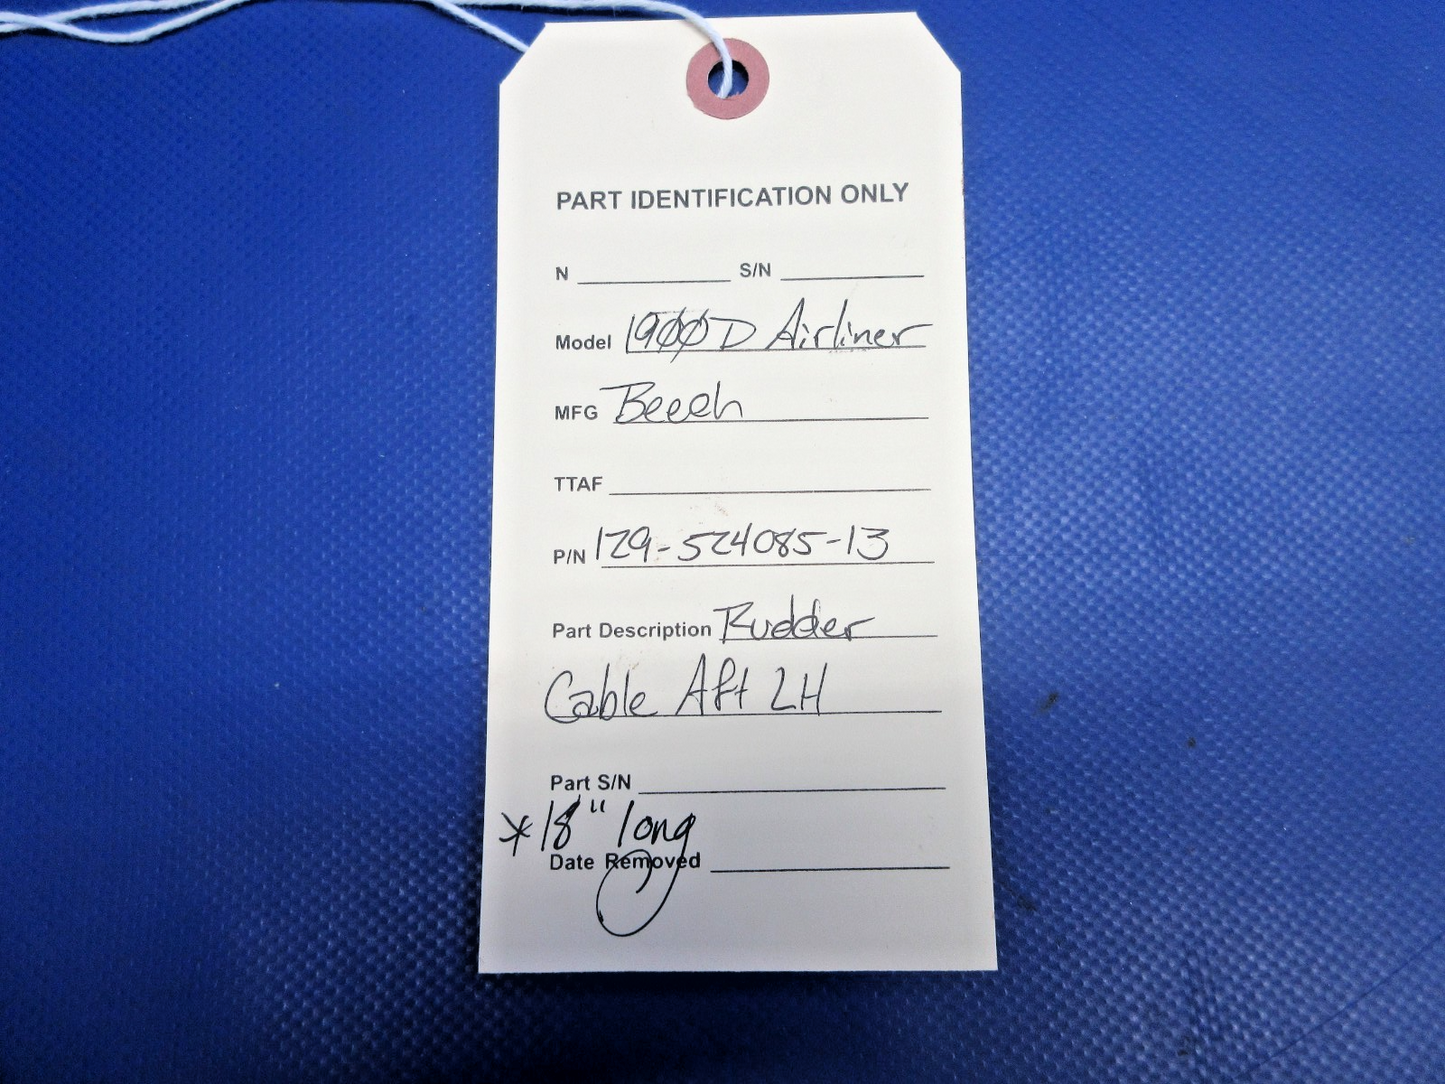 PART IDENTIFICATION ONLY
N S/N
Model 1900D Airliner
MFG Beech
TTAF
P/N 129-524085-13
Part Description Rudder
Cable Aft LH
Part S/N
*18" long
Date Removed